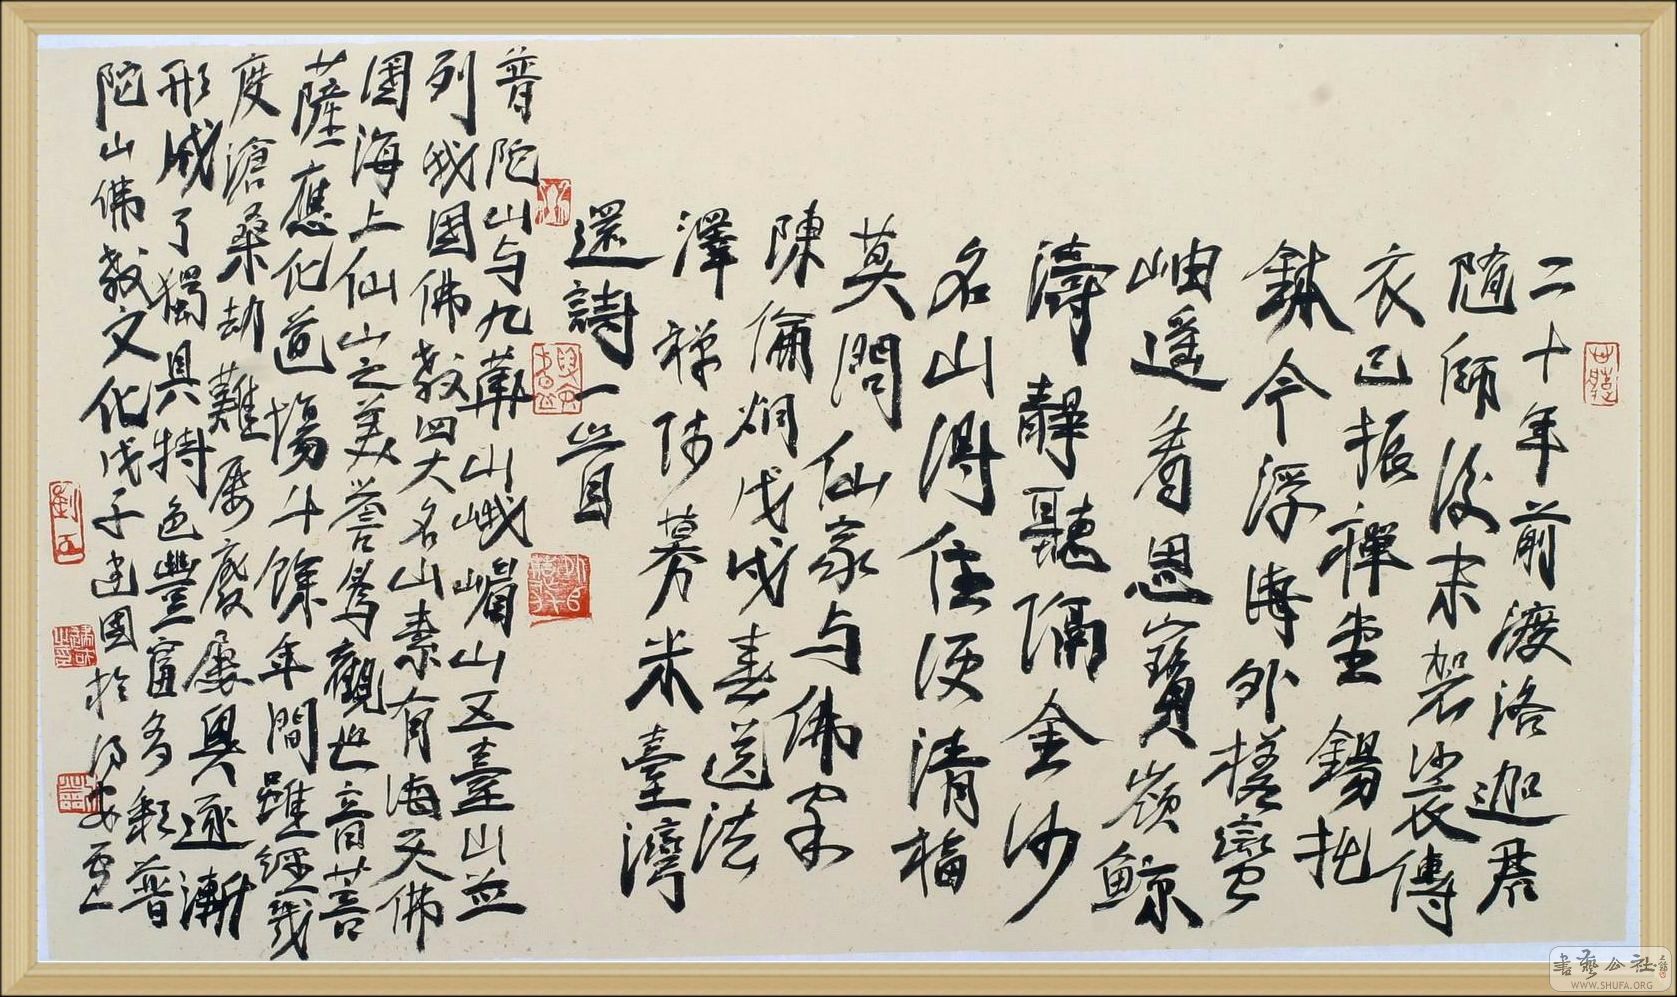 二十年前渡洛迦君
隨師後來袈裟傳
衣已振禪堂錫托
鉢今浮海外槎蠻
岫遥看思寶嶺鯨
濤靜聽隔金沙
名山得住便清福
莫問仙家与佛家
陳倫炯戊戌春送法
澤禪師募米臺灣
還詩一首
普陀山与九華山峨嵋山五臺山並
列我國佛教四大名山素有海天佛
國海上仙山之美誉為觀世音菩
薩應化道場斗餘年間雖經幾
度滄桑劫難屡廢屡興逐漸
形成了獨具特色豐富多彩普
陀山佛教文化戊子建國於
書藝公社
WWW.SHUFA.ORG